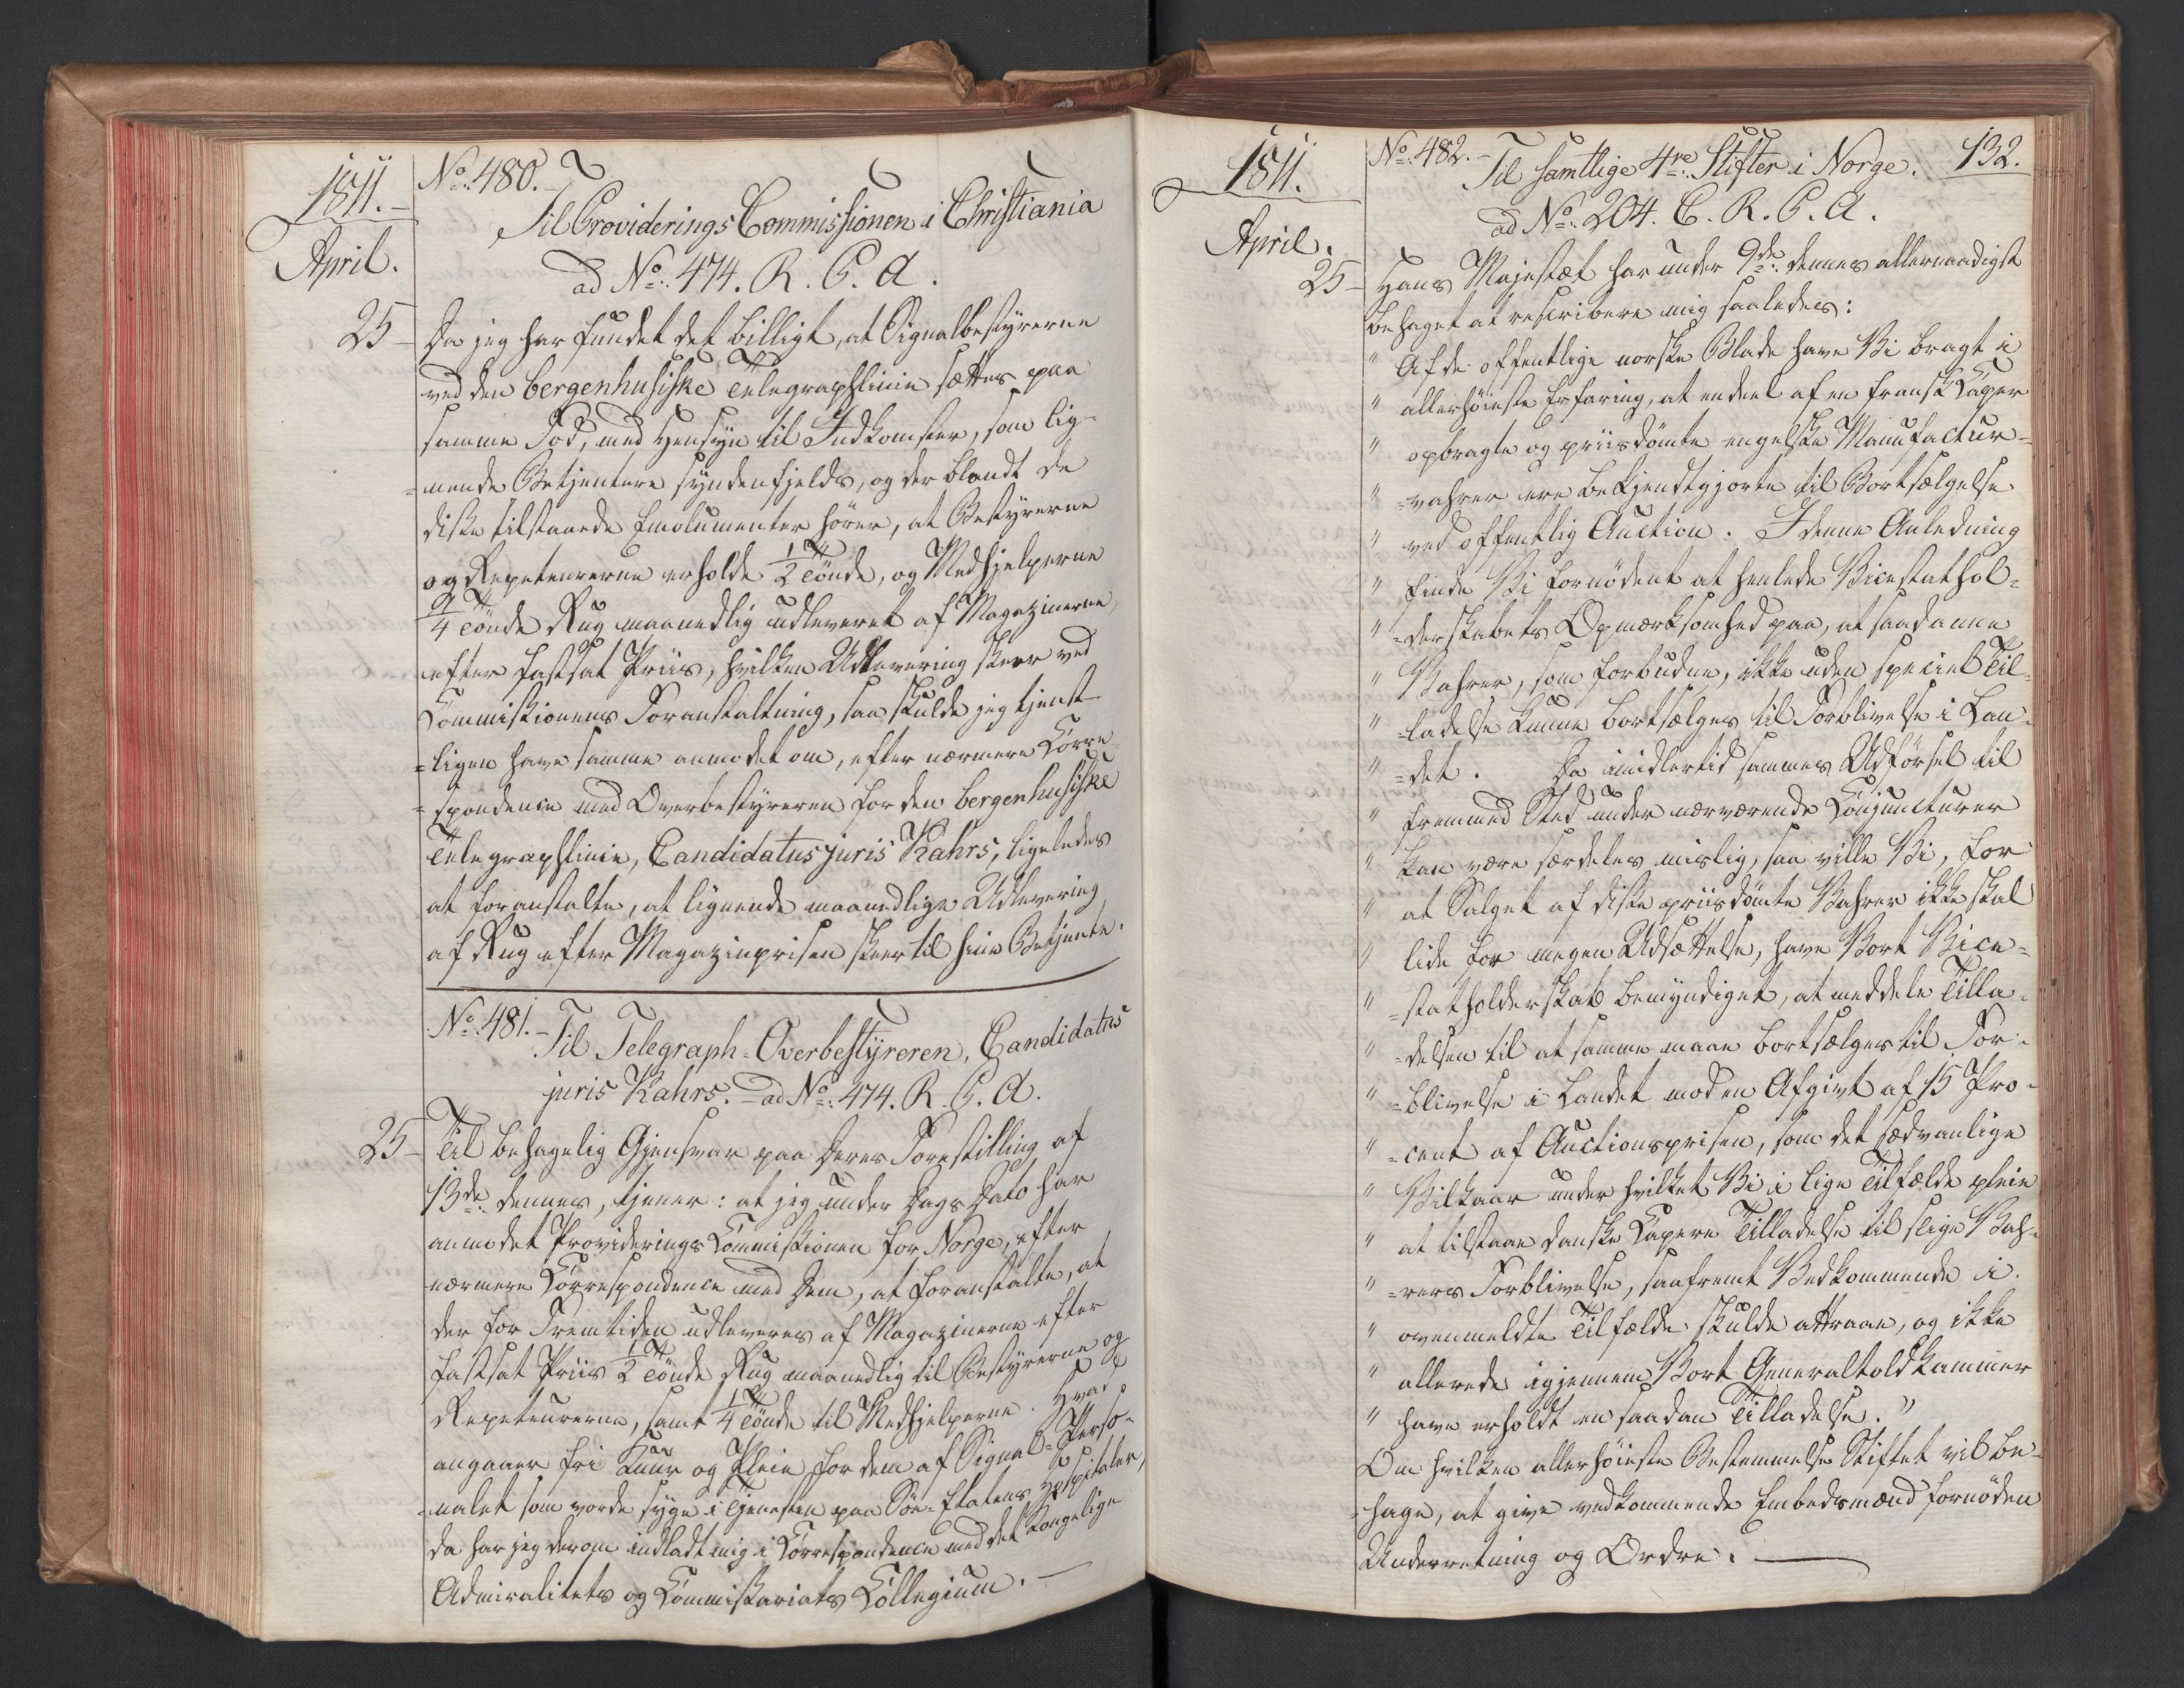 1811.
April.
No: 480.
Til Providerings Commissionen i Christiania
ad No: 474. R. P. A.
25 Da jeg har fundet det billigt, at Signalbestyrerne
ved den bergenhusiske Telegraphlinie sættes paa
samme Fod, med Hensyn til Indkomster, som lig-
=nende Betjentere syndenfjelds, og der blandt de
disse tilstaaede Emolumenter hører, at Bestyrerne
og Repeteurerne erholde 1/2 Tønde, og Medhjelperne
1/4 Tønde Rug maanedlig udleveret af Magazinerne,
efter fastsat Priis, hvilken Udlevering skeer ved
Commissionens Foranstaltning, saa skulde jeg tjenst-
=ligen have samme anmodet om, efter nærmere Corre-
=spondence med Overbestyreren for den bergenhusiske
Telegraphlinie, Candidatus juris Kahrs, ligeledes
at foranstalte, at lignende maanedlige Udlevering
af Rug efter Magazinprisen skeer til hine Betjente.
No: 481.
Til Telegraph=Overbestyreren, Candidatus
juris Kahrs. ad No: 474. R. P. A.
25 Til behagelig Gjensvar paa Deres Forestilling af
13de dennes, tjener: at jeg under Dags Dato har
anmodet Providerings Commissionen for Norge, efter
nærmere Correspondence med Dem, at foranstalte, at
der for Fremtiden udleveres af Magazinerne efter
fastsat Priis 1/2 Tønde Rug maanedlig til Bestyrerne og
Repeteurerne, samt 1/4 Tønde til Medhjelperne. Hvad
angaaer fri Kuur og Pleie for dem af Signal=Perso-
=nalet som vorde syge i Tjenesten paa Søe-Etatens Hospitaler,
da har jeg derom indladt mig i Correspondence med det Kongelige
Admiralitets og Commissariats Collegium.
1811.
April.
No: 482.
132.
Til samtlige 4re Stifter i Norge.
ad No: 204. C. R. P. A.
25 Hans Majestæt har under 9de dennes allernaadigst
behaget at rescribere mig saaledes:
" Af de offentlige norske Blade have Vi bragt i
" allerhøieste Erfaring, at endeel af en fransk Caper
" opbragte og priisdømte engelske Manufactur-
" =vahrer ere bekjendtgjorte til Bortsælgelse
" ved offentlig Auction. I denne Anledning
" finde Vi fornødent at henlede Vicestathol-
" =derskabets Opmærksomhed paa, at saadanne
" Vahrer, som forbudne, ikke uden speciel Til-
" =ladelse kunne bortsælges til Forblivelse i Lan-
" =det. Da imidlertid sammes Udførsel til
" fremmed Sted under nærværende Conjuncturer
" kan være særdeles mislig, saa ville Vi, for
" at Salget af disse priisdømte Vahrer ikke skal
" lide for megen Udsættelse, have Vort Vice-
" =statholderskab bemyndiget, at meddele Tilla-
" =delsen til at samme maae bortsælges til For-
" =blivelse i Landet mod en Afgivt af 15 Pro-
" =cent af Auctionsprisen, som det sædvanlige
" Vilkaar under hvilket Vi i lige Tilfælde pleie
" at tilstaae danske Capere Tilladelse til slige Vah-
" =rers Forblivelse, saafremt Vedkommende i
" ovenmeldte Tilfælde skulde attraae, og ikke
" allerede igjennem Vort Generaltoldkammer
" have erholdt en saadan Tilladelse."
Om hvilken allerhøieste Bestemmelse Stiftet vil be-
=hage, at give vedkommende Embedsmænd fornøden
Underretning og Ordre.